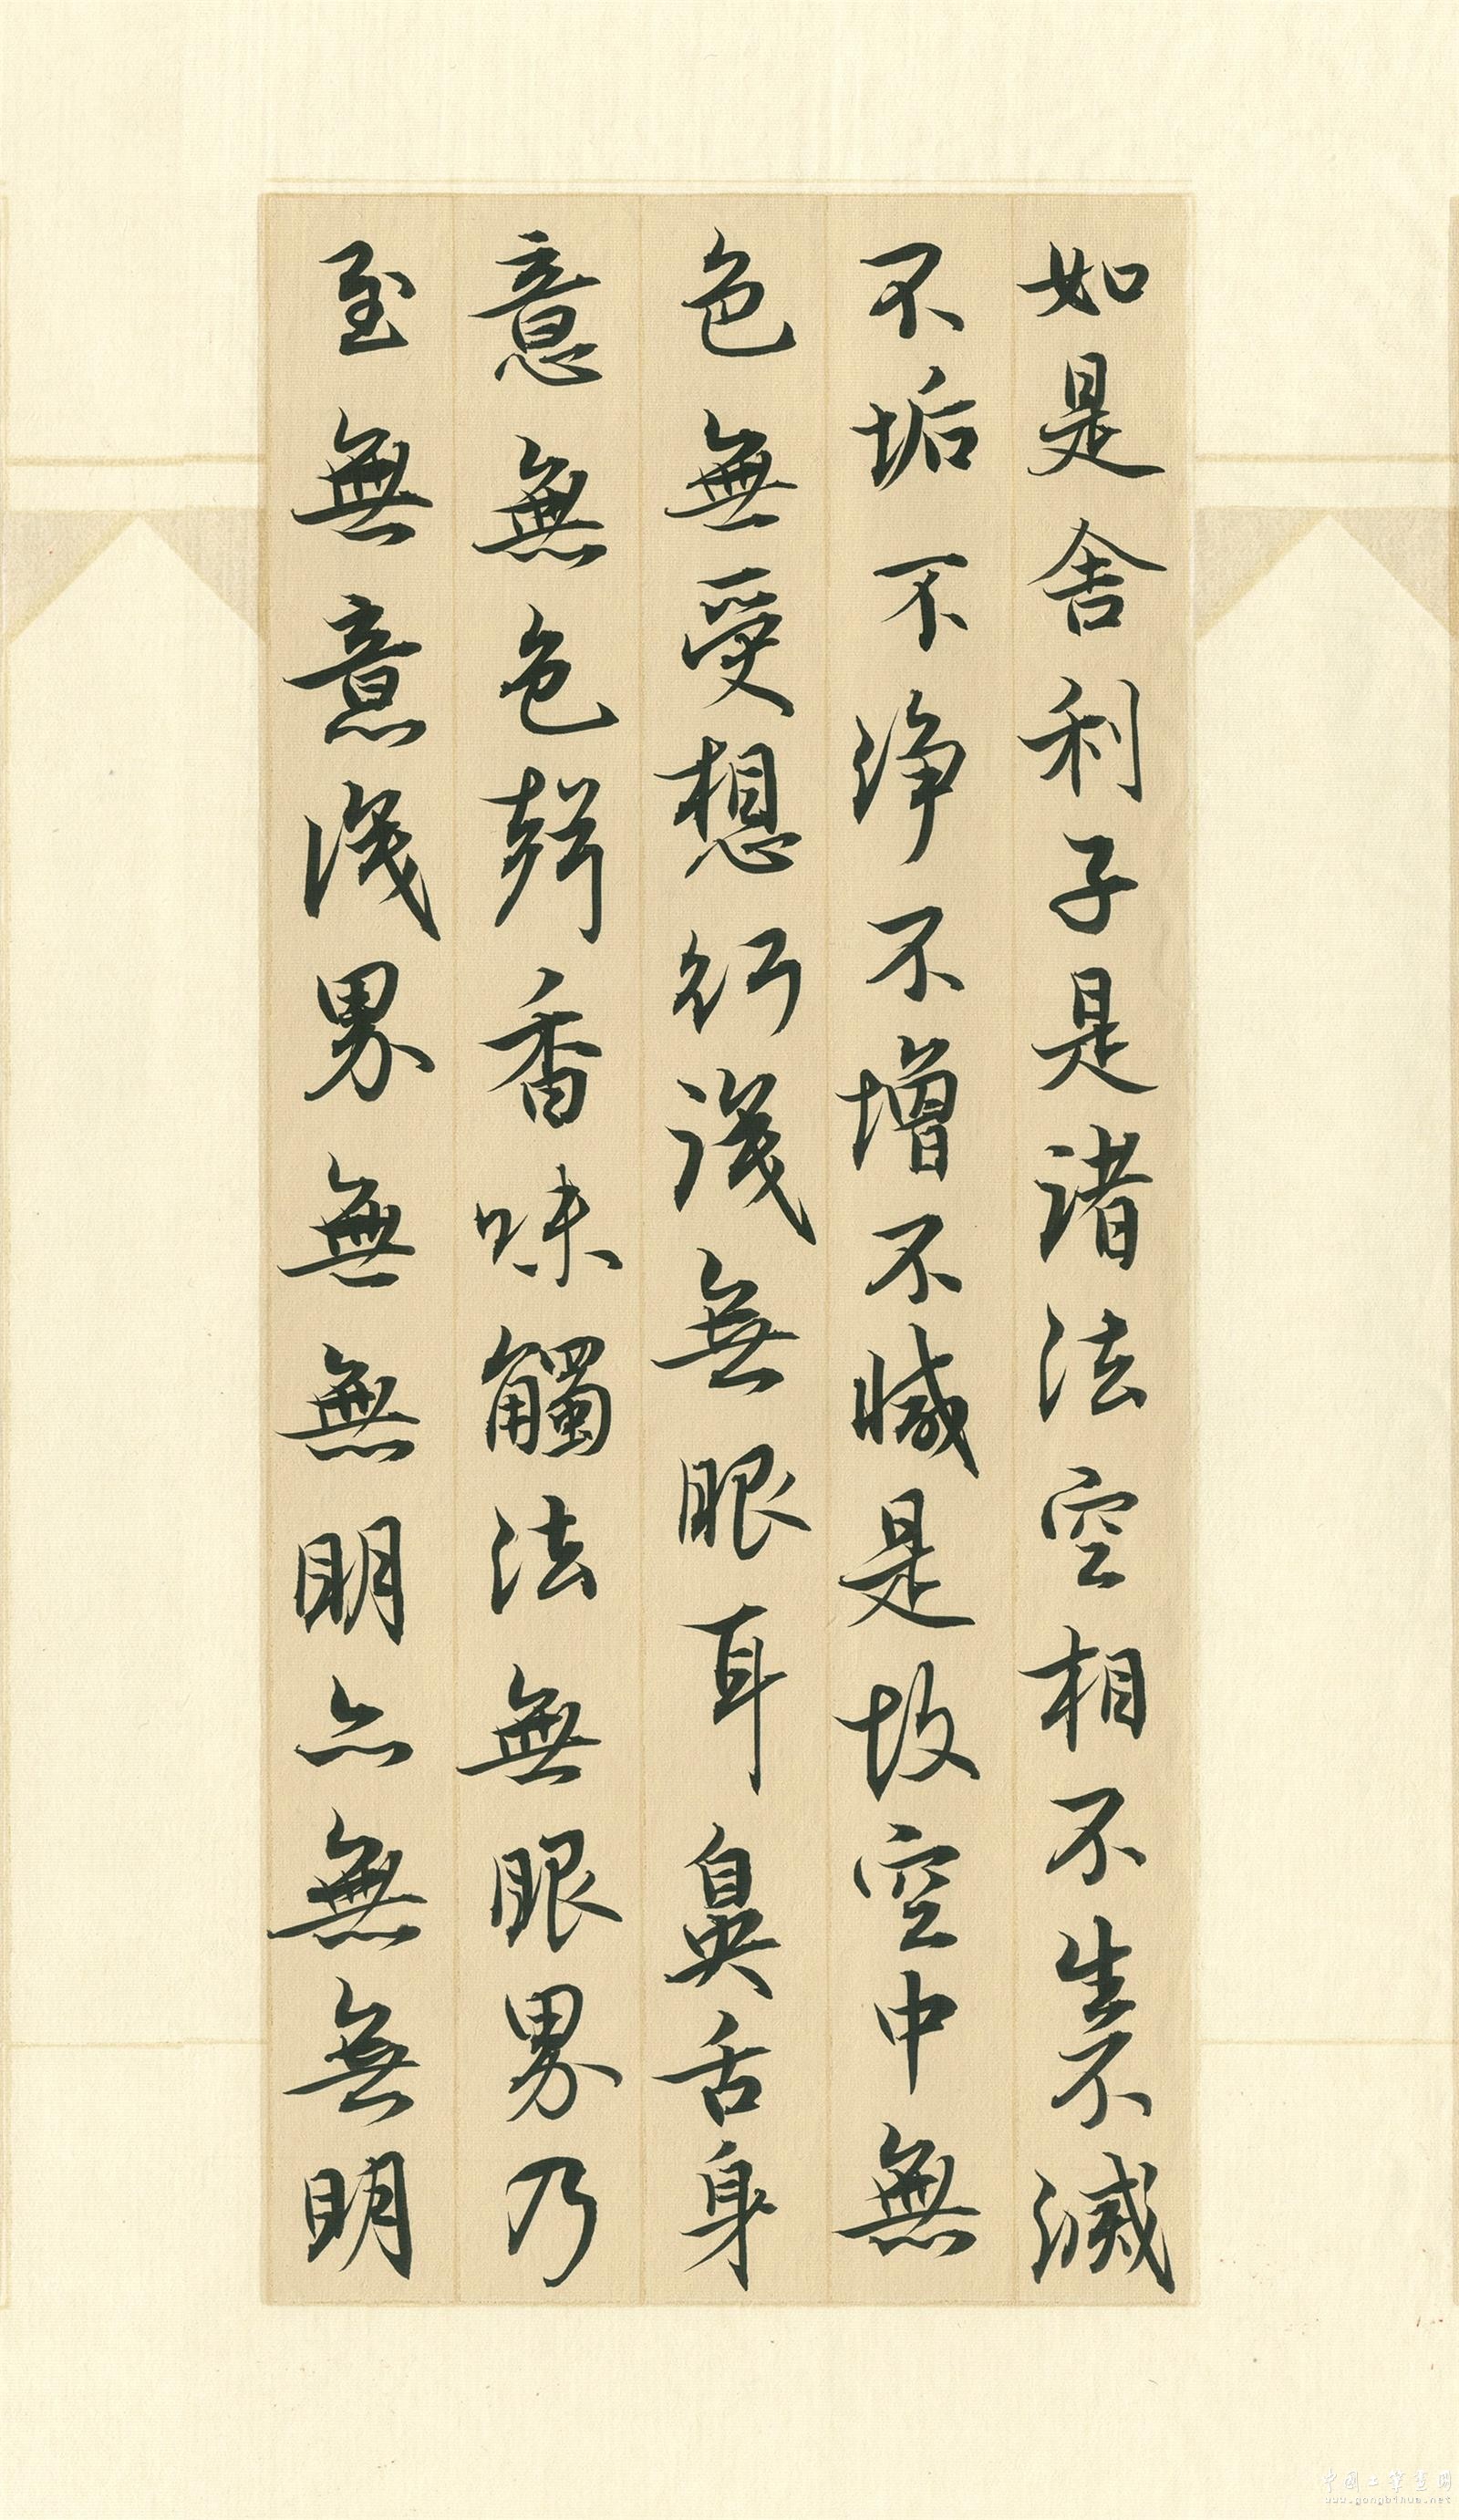 如是舍利子是諸法空相不生不滅
不垢不淨不增不減是故空中無
色無受想行識無眼耳鼻舌身
意無色聲香味觸法無眼界乃
至無意識界無無明亦無無明
中国工笔画网
www.gongbihua.net